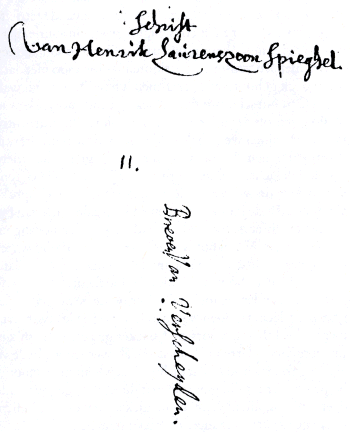 Schrift
Van Henrik Laurenszoon Spieghel.
11.
Brieven Van Verscheyden.